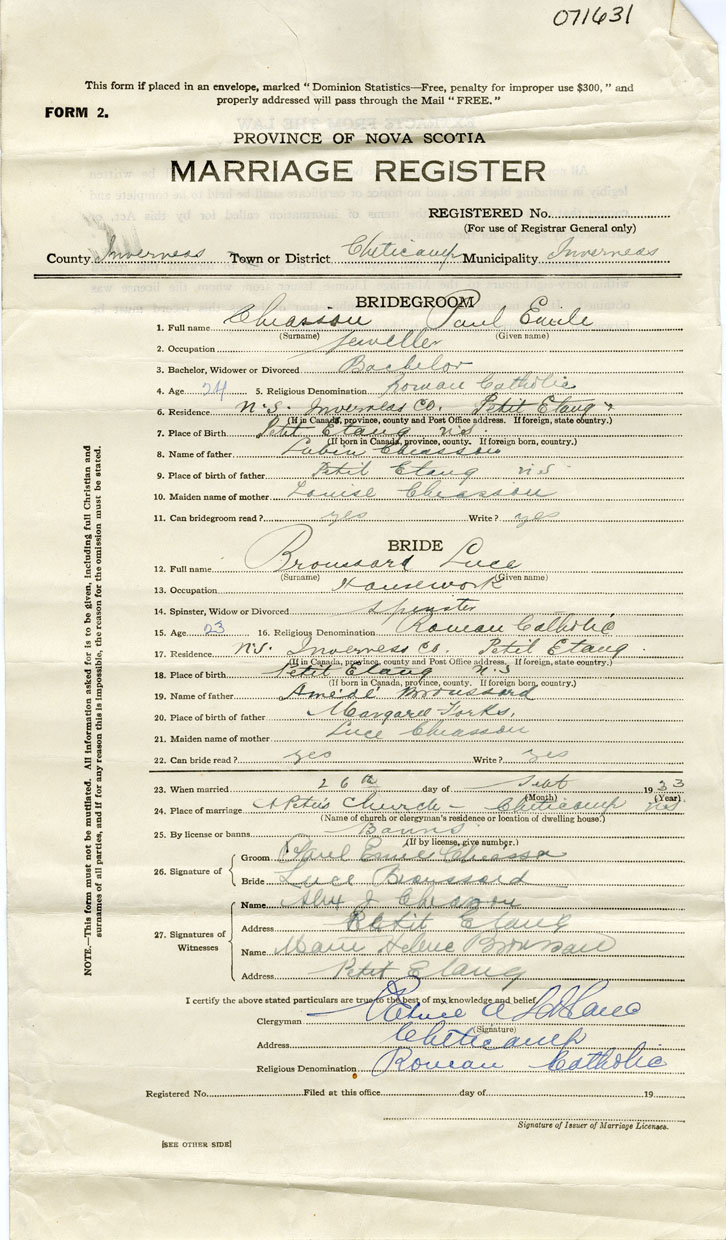 071631
This form if placed in an envelope, marked "Dominion Statistics—Free, penalty for improper use $300," and
properly addressed will pass through the Mail "FREE."
FORM 2.
PROVINCE OF NOVA SCOTIA
MARRIAGE REGISTER
REGISTERED No.
(For use of Registrar General only)
County Inverness Town or District Cheticamp Municipality Inverness
BRIDEGROOM
1. Full name Chiasson Paul Emile
(Surname) (Given name)
2. Occupation Jeweller
3. Bachelor, Widower or Divorced Bachelor
4. Age 24 5. Religious Denomination Roman Catholic
6. Residence N.S. Inverness Co. Petit Etang
(If in Canada, province, county and Post Office address. If foreign, state country.)
7. Place of Birth Petit Etang N.S.
(If born in Canada, province, county. If foreign born, country.)
8. Name of father Lubin Chiasson
9. Place of birth of father Petit Etang N.S.
10. Maiden name of mother Louise Chiasson
11. Can bridegroom read? yes Write? yes
BRIDE
12. Full name Broussard Luce
(Surname) (Given name)
13. Occupation Housework
14. Spinster, Widow or Divorced Spinster
15. Age 23 16. Religious Denomination Roman Catholic
17. Residence N.S. Inverness Co. Petit Etang
(If in Canada, province, county and Post Office address. If foreign, state country.)
18. Place of birth Petit Etang N.S
(If born in Canada, province, county. If foreign born, country.)
19. Name of father Amédé Broussard
20. Place of birth of father Margaree Forks,
21. Maiden name of mother Luce Chiasson
22. Can bride read? yes Write? yes
23. When married 26th day of Sept 1933
(Month) (Year)
24. Place of marriage St Peter's Church - Cheticamp N.S
(Name of church or clergyman's residence or location of dwelling house.)
25. By license or banns Banns
(If by license, give number.)
26. Signature of
Groom Paul Emile Chiasson
Bride Luce Broussard
27. Signatures of Witnesses
Name Alex J Chiasson
Address Petit Etang
Name Marie Broussard
Address Petit Etang
I certify the above stated particulars are true to the best of my knowledge and belief.
Clergyman A LeBlanc
(Signature)
Address Cheticamp
Religious Denomination Roman Catholic
Registered No. Filed at this office day of 19
Signature of Issuer of Marriage Licenses.
[SEE OTHER SIDE]
NOTE.—This form must not be mutilated. All information asked for is to be given, including full Christian and
surnames of all parties, and if for any reason this is impossible, the reason for the omission must be stated.